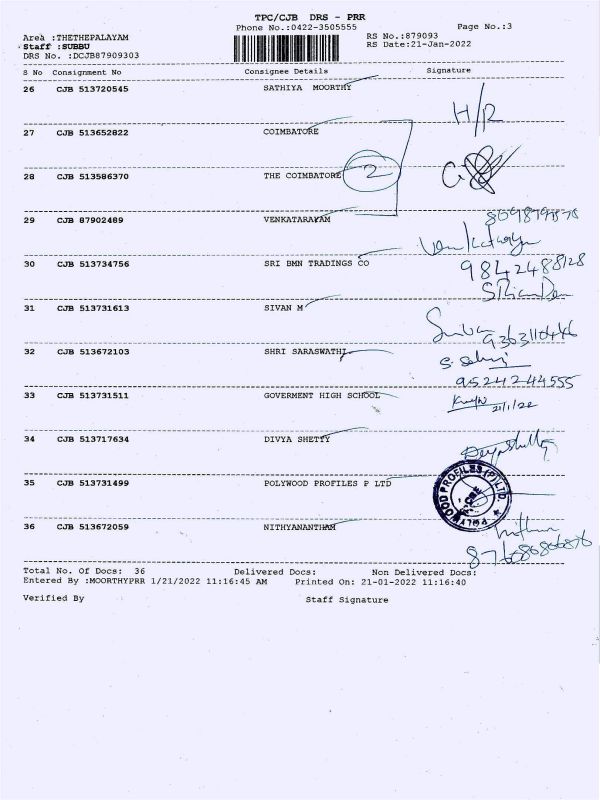 TPC/CJB DRS - PRR
Phone No.:0422-3505555
Page No.:3
Area :THETHEPALAYAM
Staff :SUBBU
DRS No. :DCJB87909303
RS No.:879093
RS Date:21-Jan-2022
S No Consignment No Consignee Details Signature
26 CJB 513720545 SATHIYA MOORTHY
H/R
27 CJB 513652822 COIMBATORE
28 CJB 513586370 THE COIMBATORE 2
29 CJB 87902489 VENKATARAYAM
30 CJB 513734756 SRI BMN TRADINGS CO
9842488128
31 CJB 513731613 SIVAN M
32 CJB 513672103 SHRI SARASWATHI
9524244555
33 CJB 513731511 GOVERMENT HIGH SCHOOL
21/1/22
34 CJB 513717634 DIVYA SHETTY
35 CJB 513731499 POLYWOOD PROFILES P LTD
POLYWOOD PROFILES (P) LTD.
36 CJB 513672059 NITHYANANTHAM
Total No. Of Docs: 36 Delivered Docs: Non Delivered Docs:
Entered By :MOORTHYPRR 1/21/2022 11:16:45 AM Printed On: 21-01-2022 11:16:40
Verified By Staff Signature